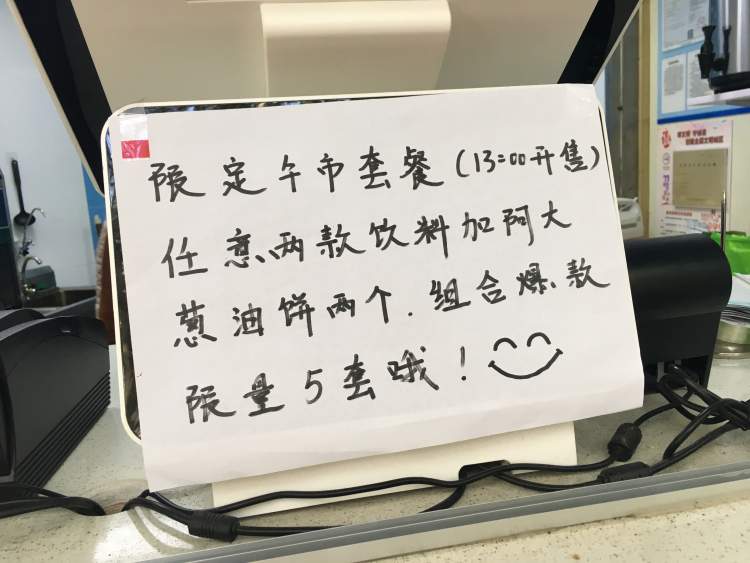 限定午市套餐(13:00开售)
任意两款饮料加阿大
葱油饼两个.组合爆款
限量5套哦!